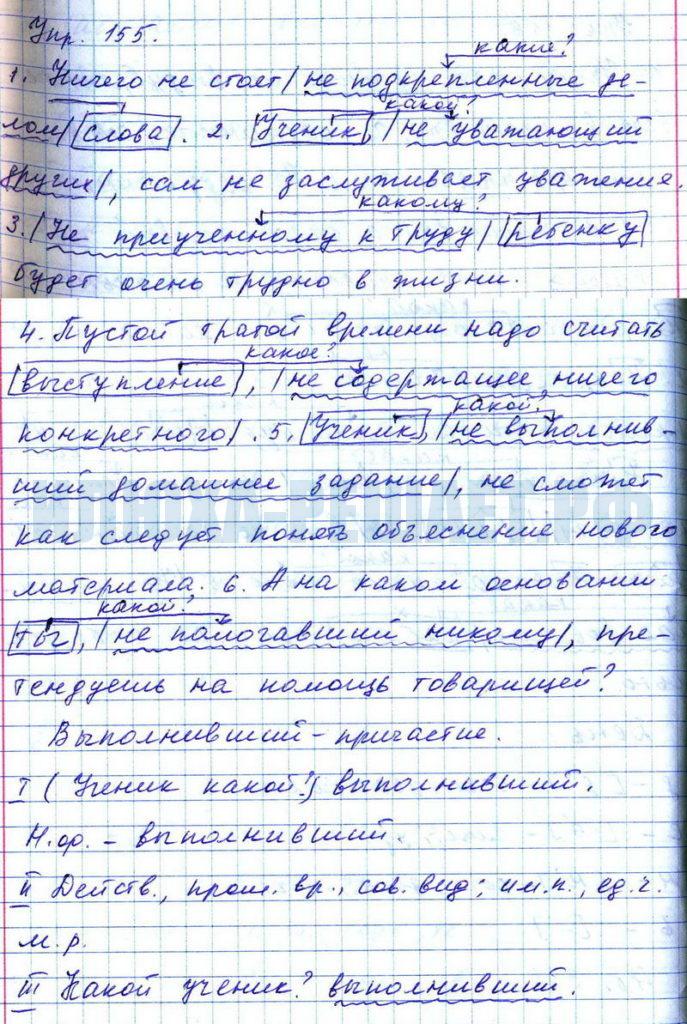 Упр. 155.
какие?
1. Ничего не стоят | не подкрепленные де-
какой?
лом| |слова|. 2. |Ученик|, |не уважающий
других|, сам не заслуживает уважения.
какому?
3. |Не приученному к труду| |ребенку|
будет очень трудно в жизни.
4. Пустой тратой времени надо считать
какое?
|выступление|, |не содержащее ничего
какой?
конкретного|. 5. |Ученик|, |не выполнив-
ший домашнее задание|, не сможет
как следует понять объяснение нового
материала. 6. А на каком основании
какой?
|ты|, |не помогавший никому|, пре-
тендуешь на помощь товарищей?
Выполнивший – причастие.
I (Ученик какой?) выполнивший.
Н.ф. – выполнивший.
II Действ., прош. вр., сов. вид; им.п., ед.ч.
м.р.
III Какой ученик? выполнивший.